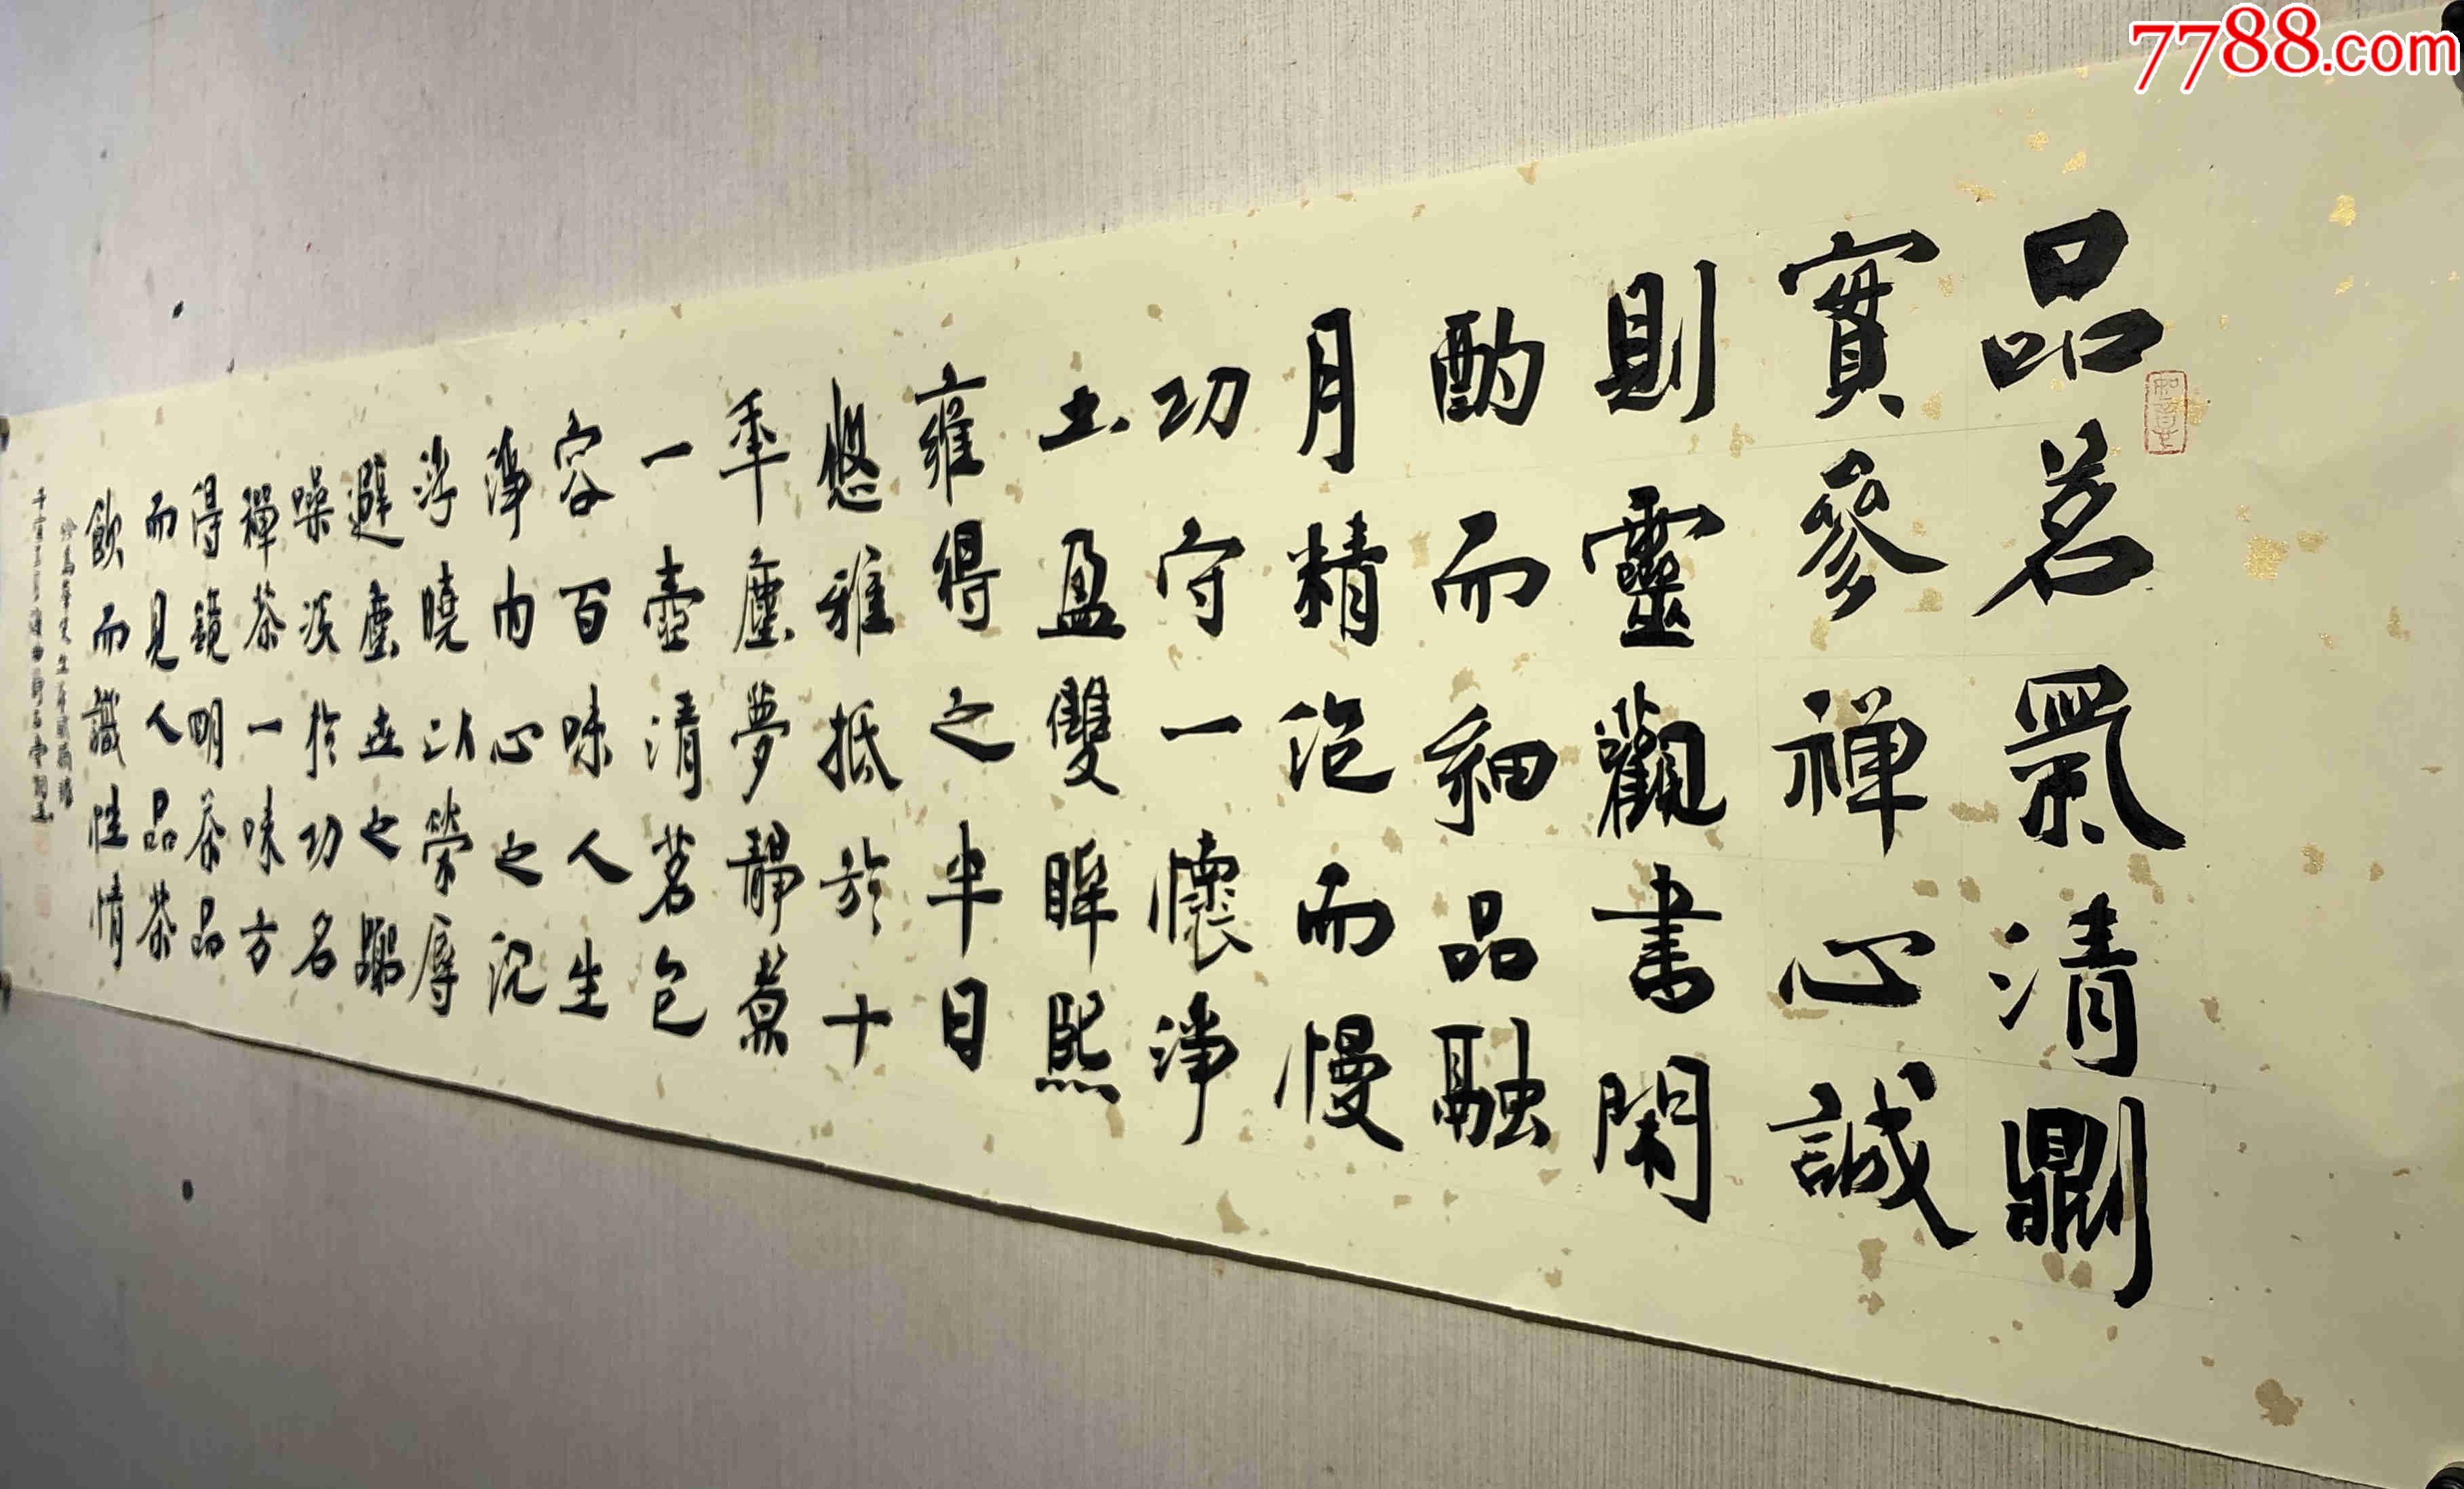 7788.com
品茗氣清則
實參禅心誠
則靈觀書閑
酌而細品融
月精浥而慢
功守一懷淨
土盈雙眸熙
雍得之半日
悠雅抵於十
年塵夢靜煮
一壺清茗包
容百味人生
淨内心之沉
浮曉以榮辱
避塵世之喧
噪淡於功名
禪茶一味方
得鏡明茶品
而見人品茶
飲而識性情